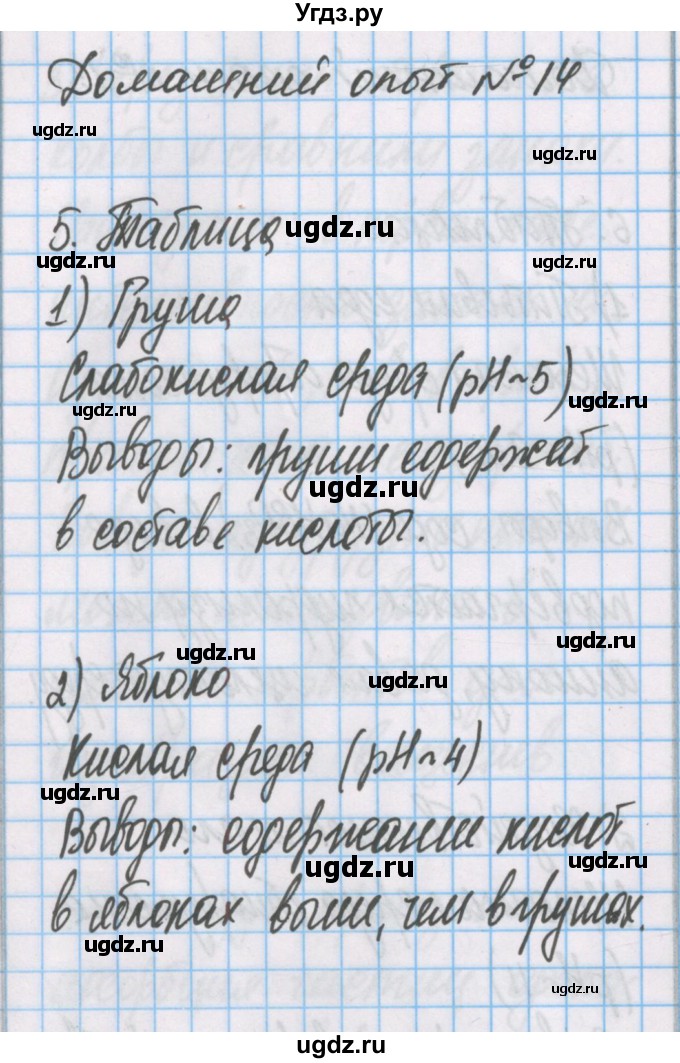 Угдз.ру
Домашний опыт №14
ugdz.ru
ugdz.ru
5. Таблица ugdz.ru
ugdz.ru
ugdz.ru
1) Груша
Слабокислая среда (pH~5)
ugdz.ru
ugdz.ru
Выводы: груши содержат
ugdz.ru
в составе кислоты.
ugdz.ru
ugdz.ru
2) Яблоко
Кислая среда (pH~4)
ugdz.ru
Выводы: содержание кислот
ugdz.ru
ugdz.ru
в яблоках выше, чем в грушах.
ugdz.ru
ugdz.ru
ugdz.ru